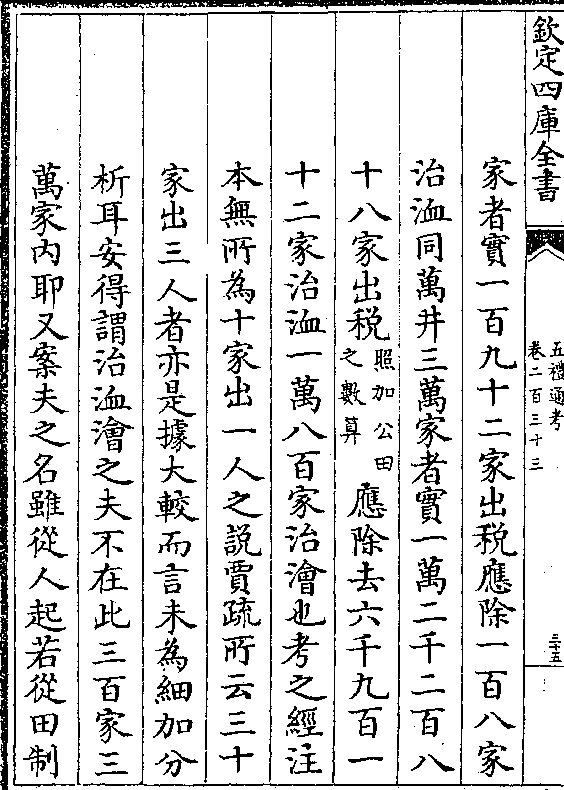 欽定四庫全書
五禮通考
卷二百三十三
三十五
家者實一百九十二家出税應除一百八家
治洫同萬井三萬家者實一萬二千二百八
十八家出税照加公田之數算應除去六千九百一
十二家治洫一萬八百家治澮也考之經注
本無所為十家出一人之說賈疏所云三十
家出三人者亦是據大較而言未為細加分
析耳安得謂治洫澮之夫不在此三百家三
萬家内耶又案夫之名雖從人起若從田制